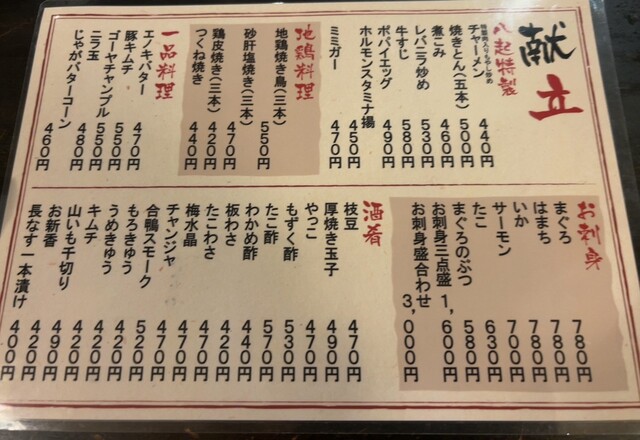 献立
八起特製
特製肉入りもやし炒め
チャーメン 440円
焼きとん(五本) 500円
煮こみ 460円
レバニラ炒め 530円
牛すじ 580円
ポパイエッグ 490円
ホルモンスタミナ揚 450円
ミミガー 470円
地鶏料理
地鶏焼き鳥(三本) 550円
砂肝塩焼き(三本) 470円
鶏皮焼き(三本) 420円
つくね焼き 440円
一品料理
エノキバター 470円
豚キムチ 550円
ゴーヤチャンプル 550円
ニラ玉 480円
じゃがバターコーン 460円
お刺身
まぐろ 780円
はまち 780円
いか 700円
サーモン 780円
たこ 630円
まぐろのぶつ 580円
お刺身三点盛 1,600円
お刺身盛合わせ 3,000円
酒肴
枝豆 470円
厚焼き玉子 490円
やっこ 470円
もずく酢 530円
たこ酢 570円
わかめ酢 440円
板わさ 420円
たこわさ 470円
梅水晶 470円
チャンジャ 470円
合鴨スモーク 520円
もろきゅう 420円
うめきゅう 420円
キムチ 420円
山いも千切り 490円
お新香 420円
長なす一本漬け 400円